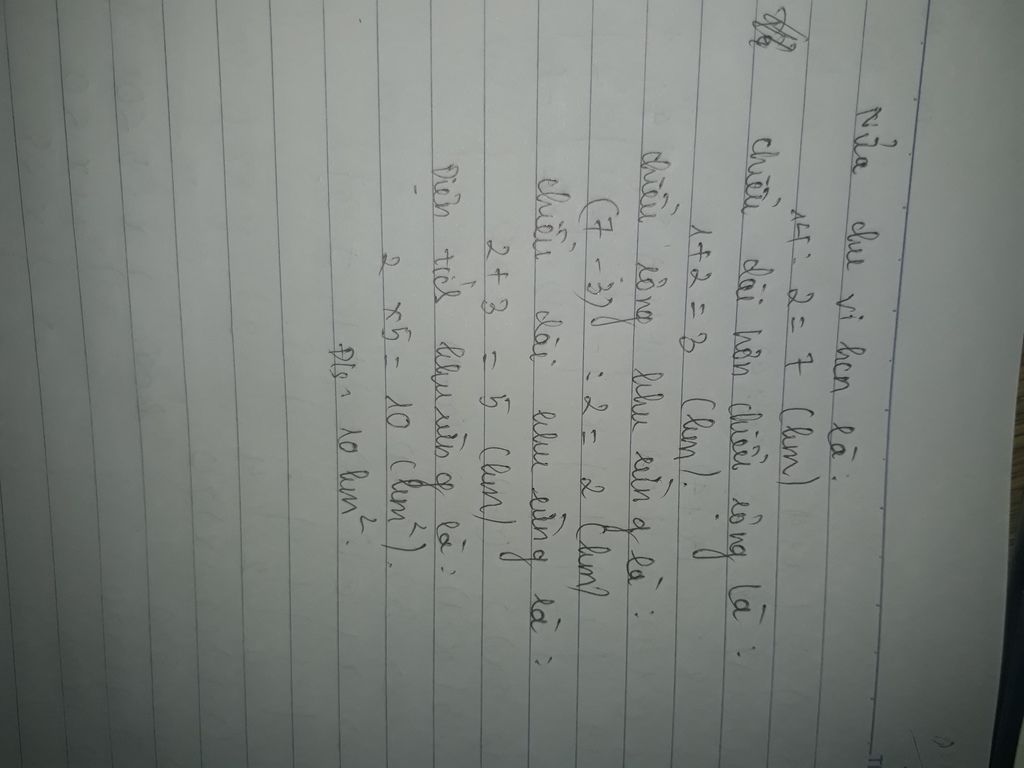 Nửa chu vi hcn là:
14 : 2 = 7 (km)
chiều dài hơn chiều rộng là :
1 + 2 = 3 (km).
chiều rộng khu rừng là :
(7 - 3) : 2 = 2 (km)
chiều dài khu rừng là :
2 + 3 = 5 (km)
Diện tích khu rừng là :
2 x 5 = 10 (km²).
Đ/s: 10 km².